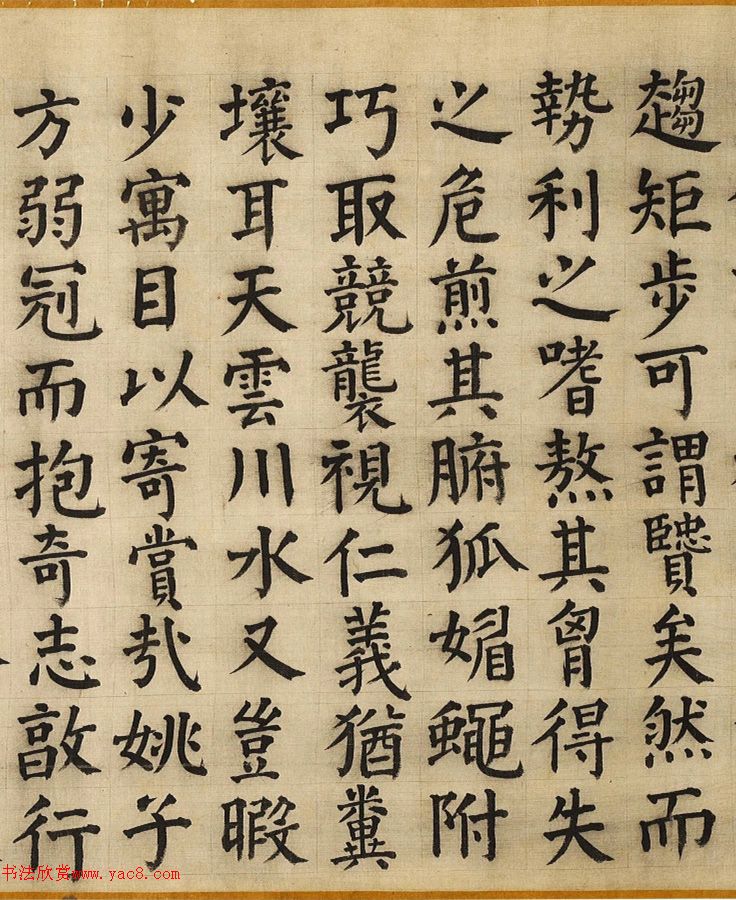 趨矩步可謂贒矣然而
勢利之嗜熬其胷得失
之危煎其腑狐媚蠅附
巧取競襲視仁義猶糞
壤耳天雲川水又豈暇
少寓目以寄賞哉姚子
方弱冠而抱奇志敦行
书法欣赏www.yac8.com